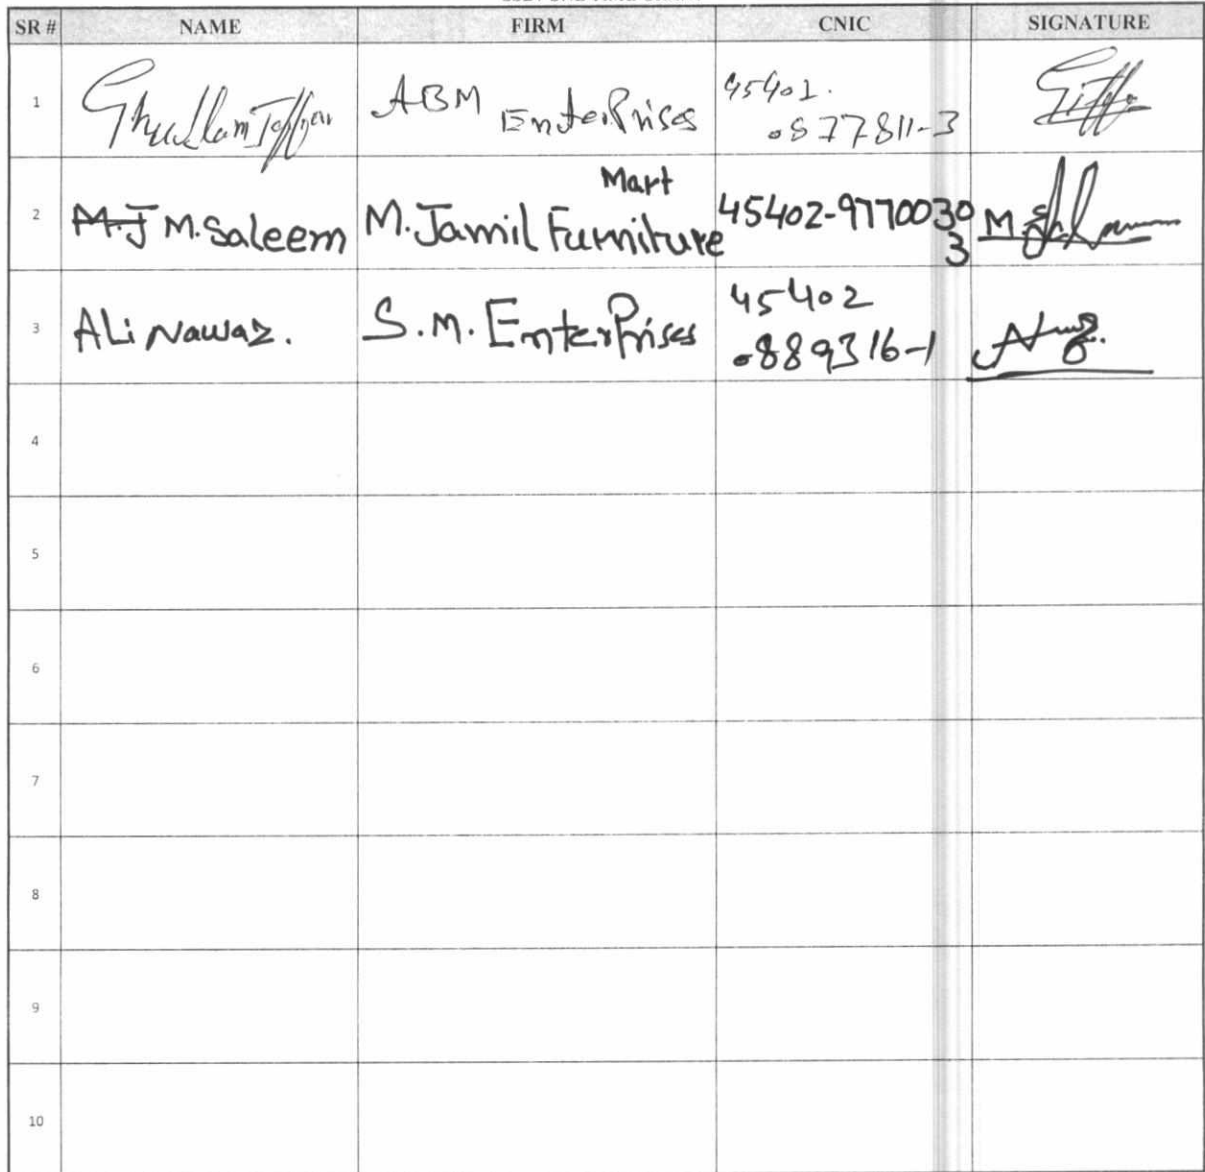 SR # NAME FIRM CNIC SIGNATURE
1 Ghullam Jaffar ABM EnterPrises 45402.
.0577811-3
Mart
2 M.J M.Saleem M.Jamil Furniture 45402-9770030
3
3 ALi Nawaz. S.M. EnterPrises 45402
-0889316-1
4
5
6
7
8
9
10